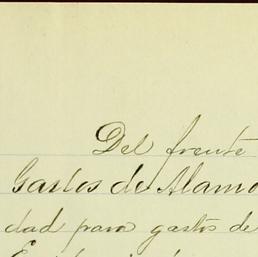 Del frente
Gastos de Alamo
dad para gastos de